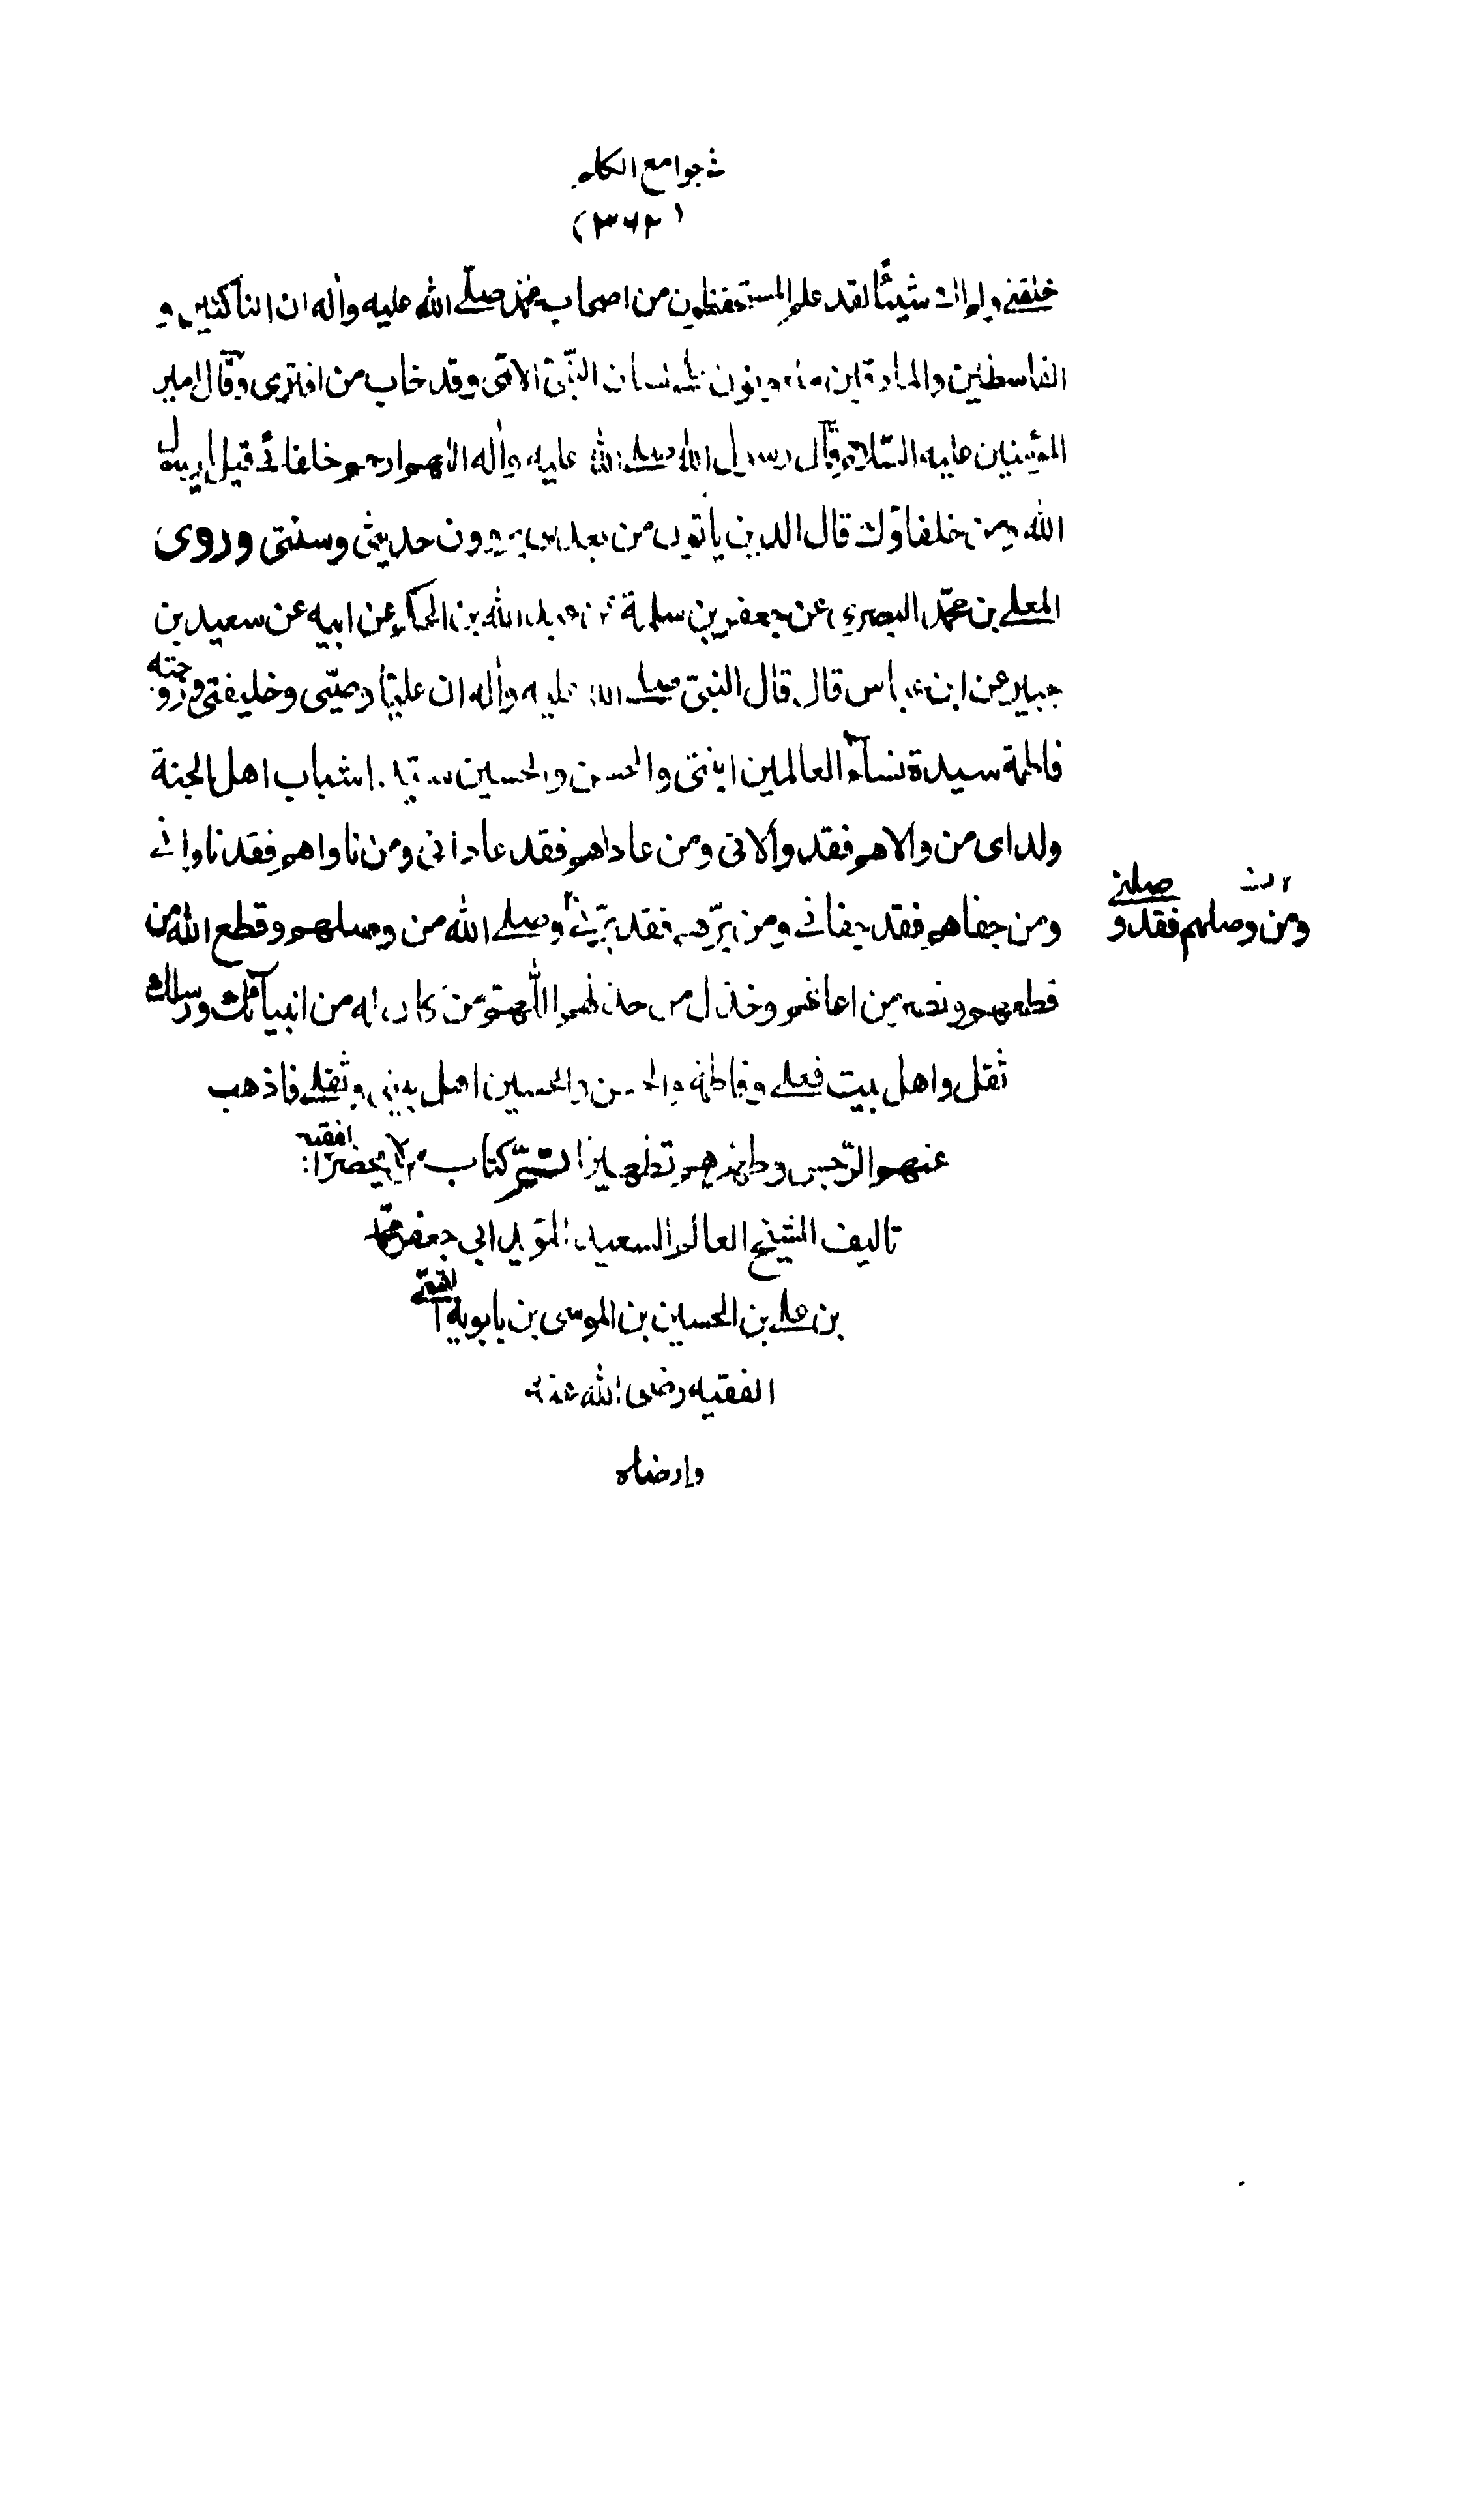 جوامع الكلم
(٣٦٢)
خلقني ولم اك شيئا لقد علم المستحفظون من اصحاب محمد صلى الله عليه واله ان الناكثين و
القاسطين والمارقين ملعونون على لسان النبي الامي وقد خاب من افترى وقال امير
المؤمنين عليه السلام قال رسول الله صلى الله عليه واله اللهم ارحم خلفائي قيل يا رسول
الله ومن خلفاؤك قال الذين يأتون من بعدي يروون حديثي وسنتي وروى
المعلى بن محمد البصري عن جعفر بن سلمة عن عبد الله بن الحكم عن ابيه عن سعيد بن
جبير عن ابن عباس قال قال النبي صلى الله عليه واله ان عليا وصيي وخليفتي وزوجته
فاطمة سيدة نسآء العالمين ابنتي والحسن والحسين سيدا شباب اهل الجنة
ولداي من والاهم فقد والاني ومن عاداهم فقد عاداني ومن ناواهم فقد ناواني
ومن جفاهم فقد جفاني ومن برهم فقد برني وصلى الله من وصلهم وقطع الله من
ومن وصلهم فقد وصلني
قطعهم ونصر من اعانهم وخذل من خذلهم اللهم من كان له من انبيآئك ورسلك
ثقل واهل بيت فعلي وفاطمة والحسن والحسين اهل بيتي وثقلي فاذهب
عنهم الرجس وطهرهم تطهيرا كتاب من لا يحضره الفقيه
تاليف الشيخ العالم السعيد المؤيد ابي جعفر محمد
بن علي بن الحسين بن الموسى بن بابويه القمي
الفقيه رضى الله عنه
وارضاه